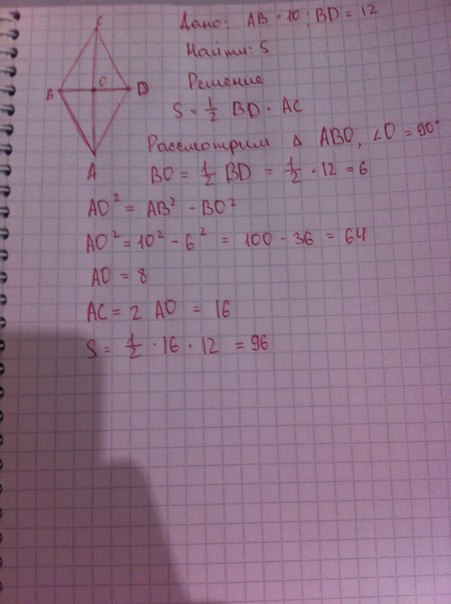 Дано: AB = 10; BD = 12
Найти: S
Решение
S = 1/2 BD · AC
Рассмотрим Δ ABO, ∠O = 90°
BO = 1/2 BD = 1/2 · 12 = 6
AO² = AB² - BO²
AO² = 10² - 6² = 100 - 36 = 64
AO = 8
AC = 2 AO = 16
S = 1/2 · 16 · 12 = 96
C
B
O
D
A